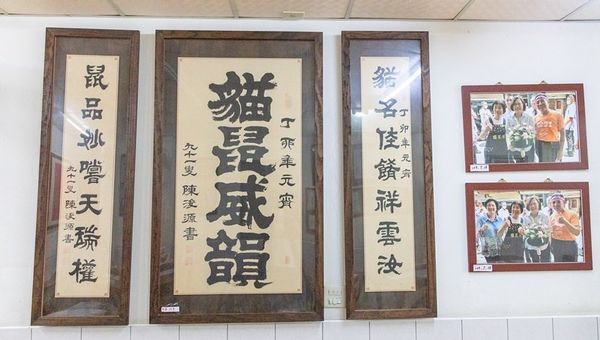 貓名佳饈祥雲汝
丁卯年元宵
丁卯年元宵
貓鼠威韻
九十一叟 陳浚源書
鼠品妙嚐天瑞權
九十一叟 陳浚源書